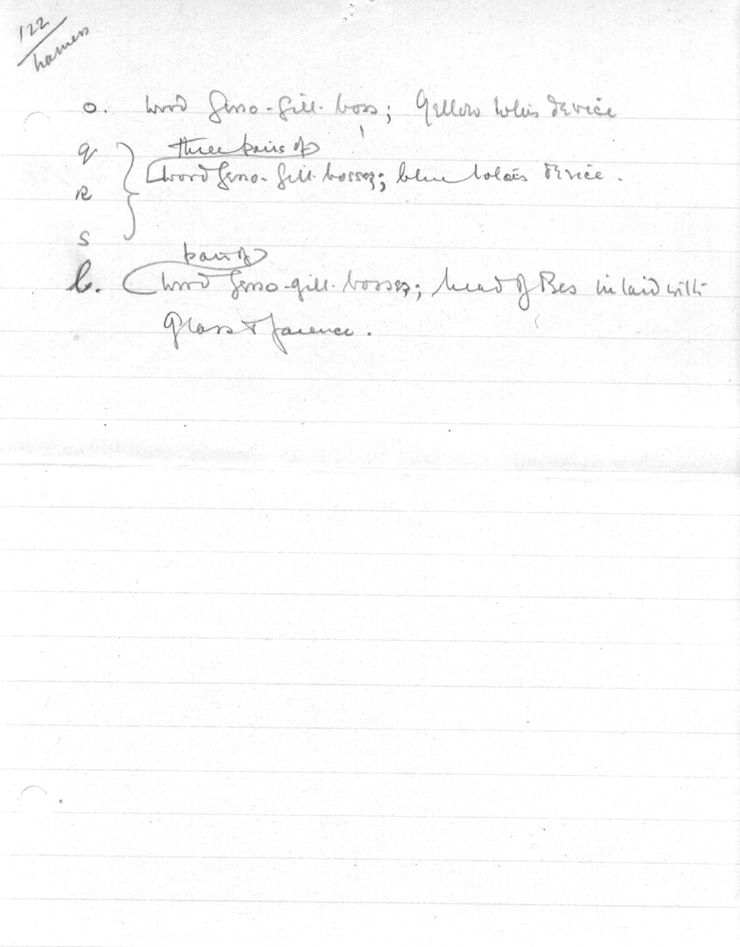 122
harness
o. wood gesso-gilt boss; yellow lotus device
q
three pairs of
wood gesso-gilt bosses; blue lotus device.
R
S
pair of
l. wood gesso-gilt bosses; head of Bes inlaid with
glass & faience.